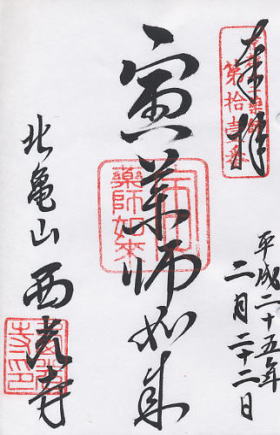 奉拝
第拾壱番
平成二十五年
二月二十二日
寅薬師如来
薬師如来
北亀山 西光寺